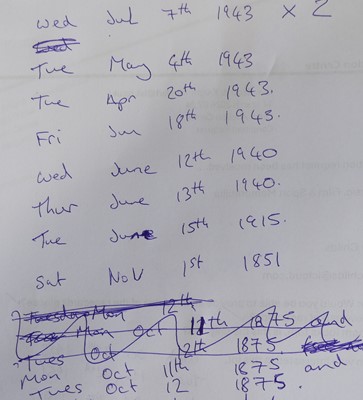 Wed July 7th 1943 x 2
Tue May 4th 1943
Tue Apr 20th 1943.
Fri Jun 18th 1943.
Wed June 12th 1940
Thur June 13th 1940.
Tue June 15th 1915.
Sat Nov 1st 1851
Tuesday Mon 12th
Mon Oct 11th 1875 and
Tues Oct 12th 1875.
Mon Oct 11th 1875 and
Tues Oct 12 1875.